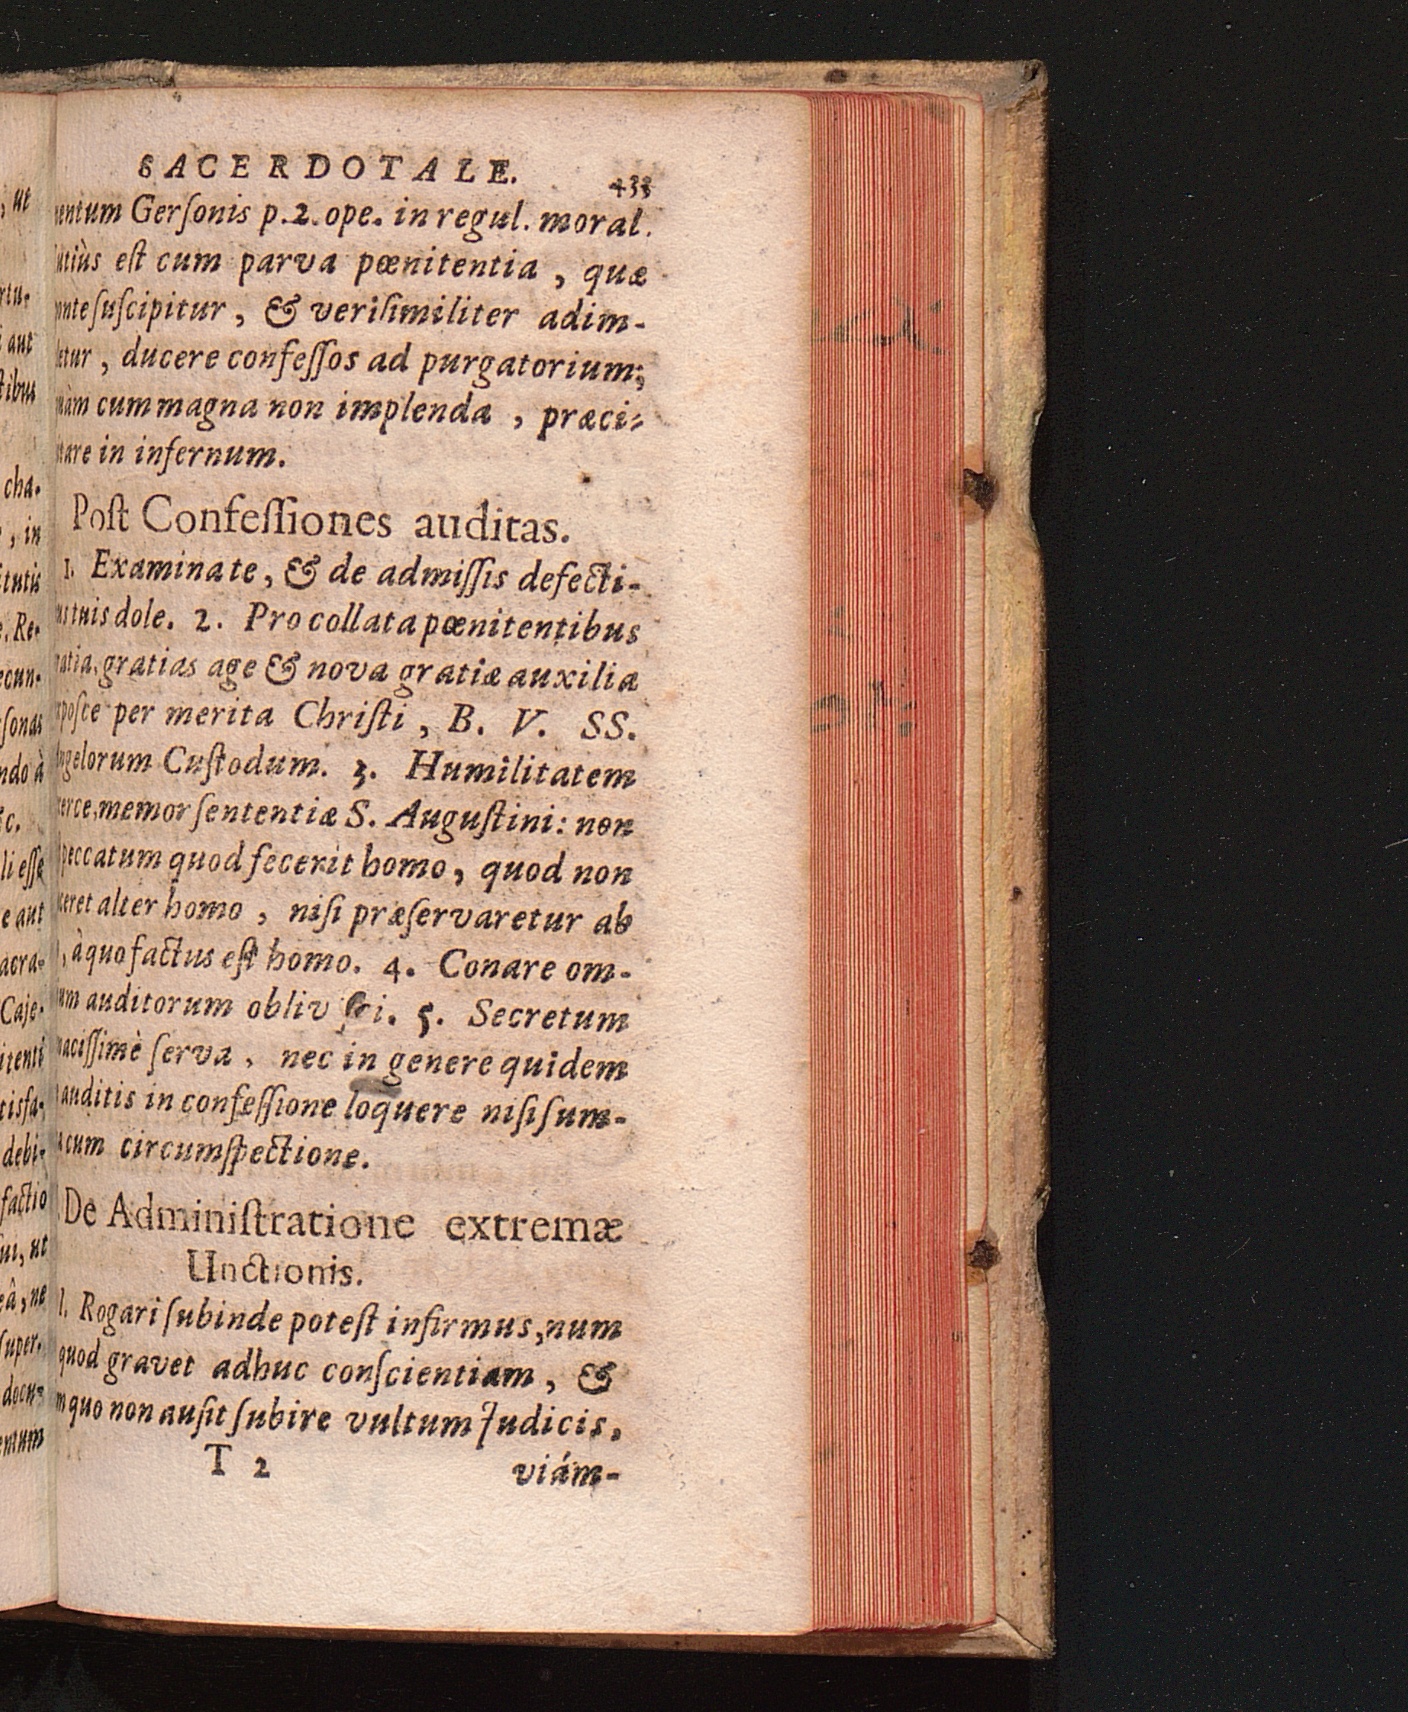 SACERDOTALE. 433
entum Gersonis p.2. ope. in regul. moral.
atiùs est cum parva pœnitentia, quæ
onte suscipitur, & verisimiliter adim-
letur, ducere confessos ad purgatorium;
uàm cum magna non implenda, præci-
tare in infernum.
Post Confessiones auditas.
1. Examina te, & de admissis defecti-
us tuis dole. 2. Pro collata pœnitentibus
ratia, gratias age & nova gratiæ auxilia
xposce per merita Christi, B. V. SS.
ngelorum Custodum. 3. Humilitatem
xerce, memor sententiæ S. Augustini: non
peccatum quod fecerit homo, quod non
ceret alter homo, nisi præservaretur ab
, à quo factus est homo. 4. Conare om-
um auditorum oblivisci. 5. Secretum
nacissimè serva, nec in genere quidem
auditis in confessione loquere nisi sum-
a cum circumspectione.
De Administratione extremæ
Unctionis.
I. Rogari subinde potest infirmus, num
quod gravet adhuc conscientiam, &
m quo non ausit subire vultum Judicis,
T 2 viám-